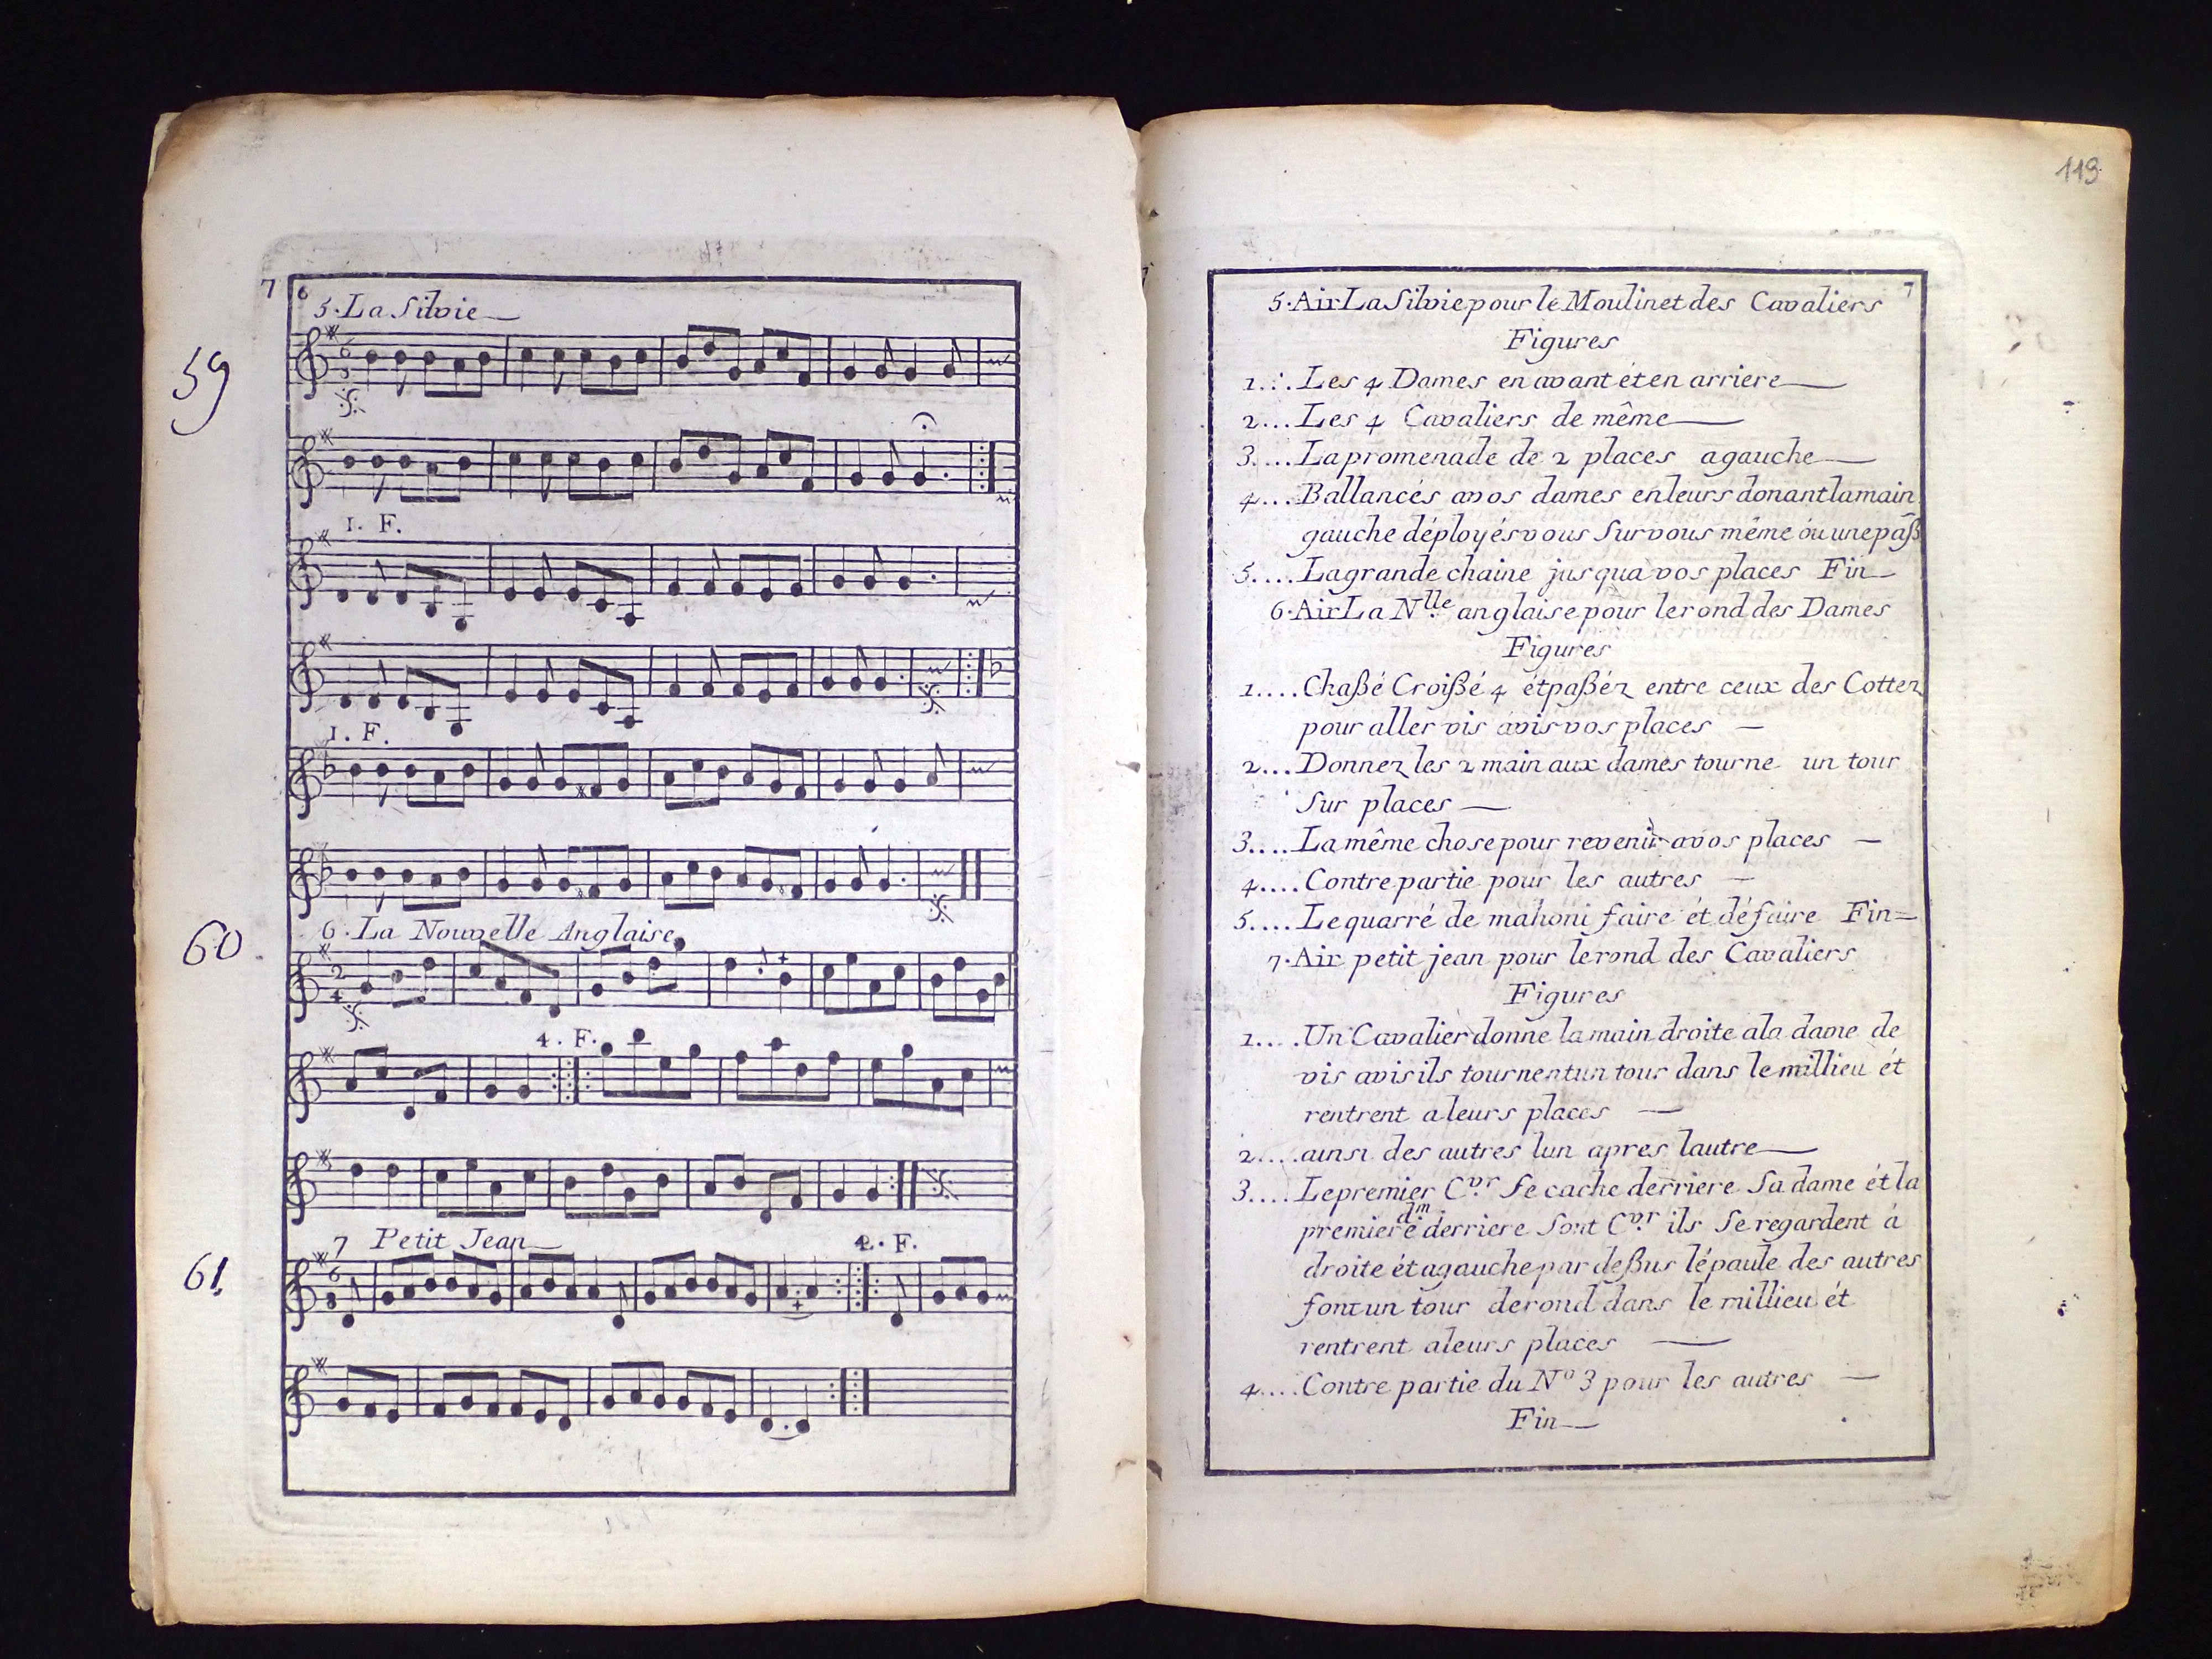 7 6
5. La Silvie
59
1. F.
1. F.
6. La Nouvelle Anglaise
60.
4. F.
7 Petit Jean
2. F.
61.
119
7
5. Air La Silvie pour le Moulinet des Cavaliers
Figures
1... Les 4 Dames en avant ét en arriere
2... Les 4 Cavaliers de même
3.... La promenade de 2 places a gauche
4... Ballancés avos dames en leurs donant la main
gauche déployés vous Sur vous même óu une paß
5.... La grande chaine jusqua vos places Fin
6. Air La Nlle anglaise pour le rond des Dames
Figures
1.... Chaßé Croißé 4 ét paßéz entre ceux des Cottez
pour aller vis avis vos places
2... Donnez les 2 main aux dames tourne un tour
Sur places
3.... La même chose pour revenir avos places
4.... Contre partie pour les autres
5.... Le quarré de mahoni faire ét défaire Fin
7. Air petit jean pour le rond des Cavaliers
Figures
1.... Un Cavalier donne la main droite ala dame de
vis avis ils tournent un tour dans le millieu ét
rentrent a leurs places
2.... ainsi des autres lun apres lautre
3.... Le premier Cvr Se cache derriere Sa dame ét la
premiere dm derriere Sont Cvr ils Se regardent á
droite ét agauche par deßus lépaule des autres
font un tour de rond dans le millieu ét
rentrent a leurs places
4.... Contre partie du No 3 pour les autres
Fin